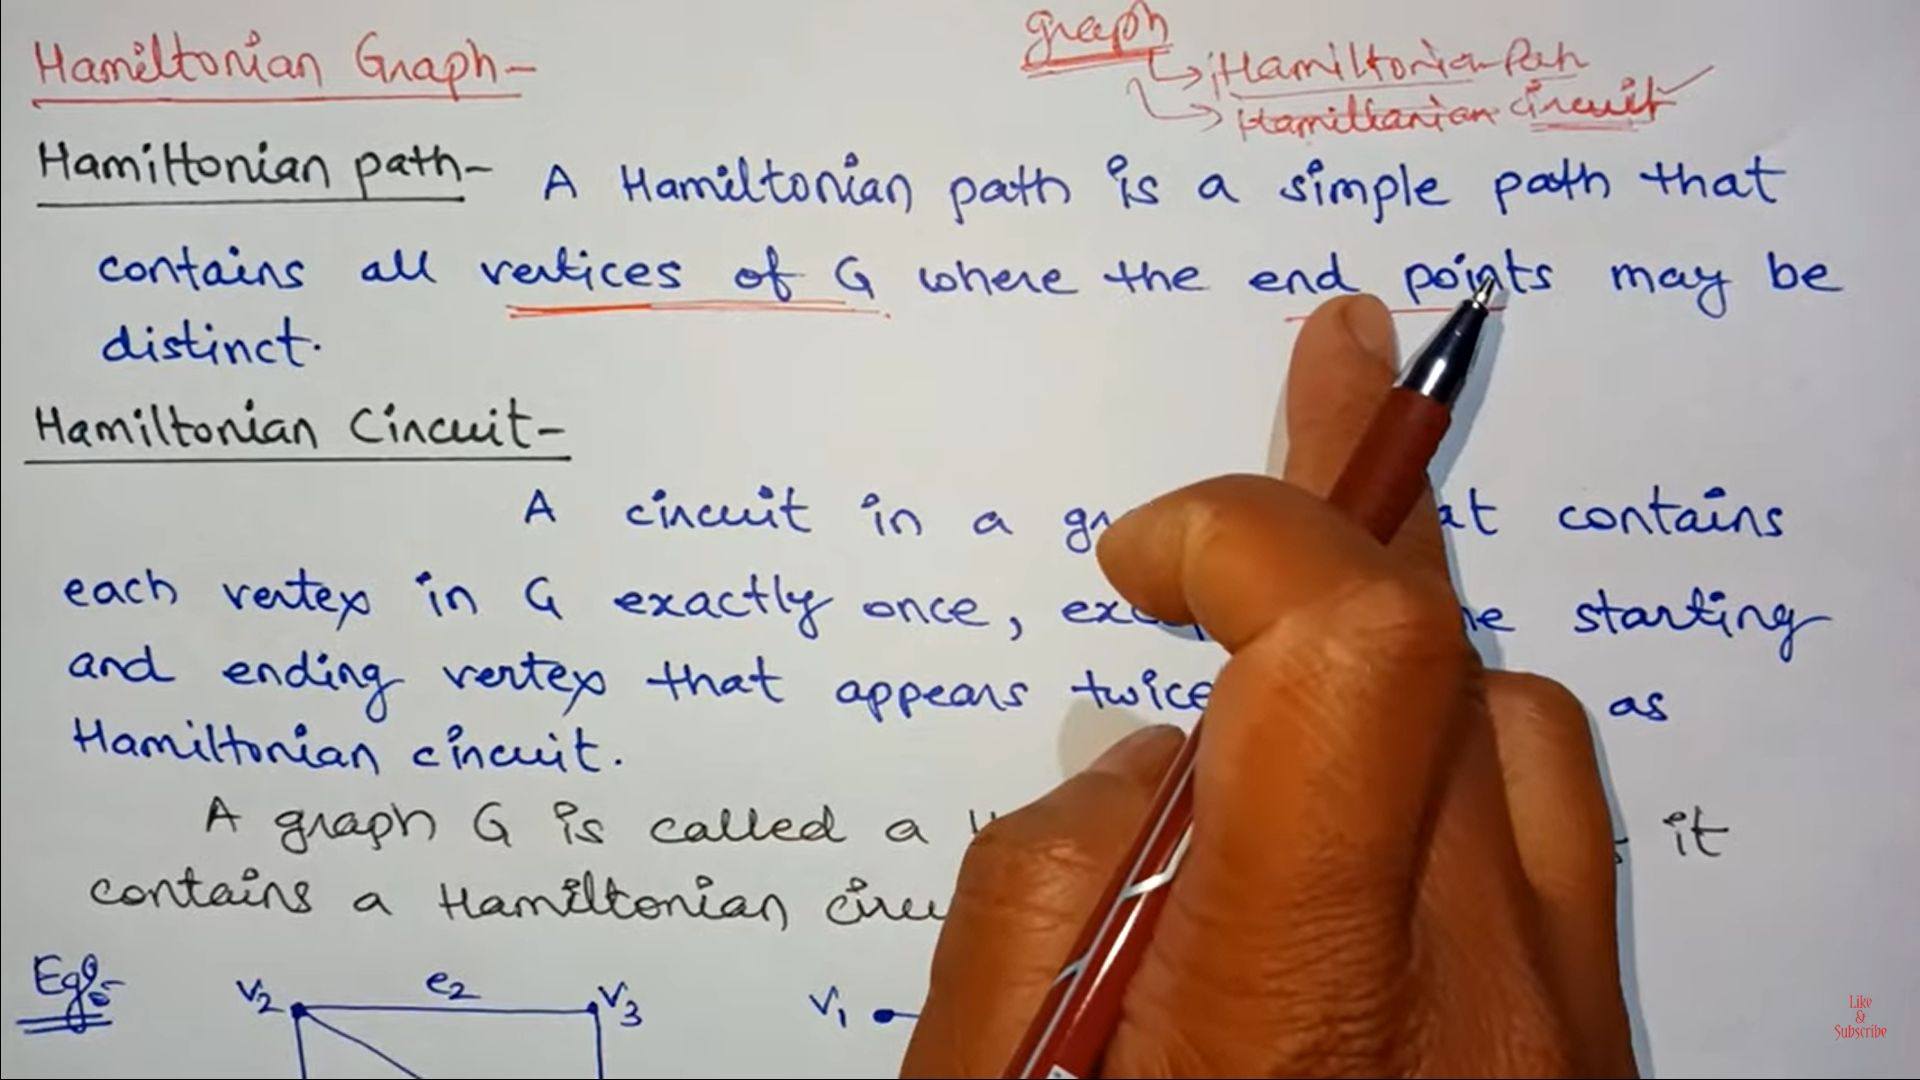 Hamiltonian Graph-
graph
Hamiltonian Path
Hamiltonian circuit
Hamiltonian path- A Hamiltonian path is a simple path that
contains all vertices of G where the end points may be
distinct.
Hamiltonian Circuit-
A circuit in a contains
each vertex in G exactly once, starting
and ending vertex that appears twice as
Hamiltonian circuit.
A graph G is called a it
contains a Hamiltonian
Eg:-
V2 e2 V3 V1
Like
&
Subscribe